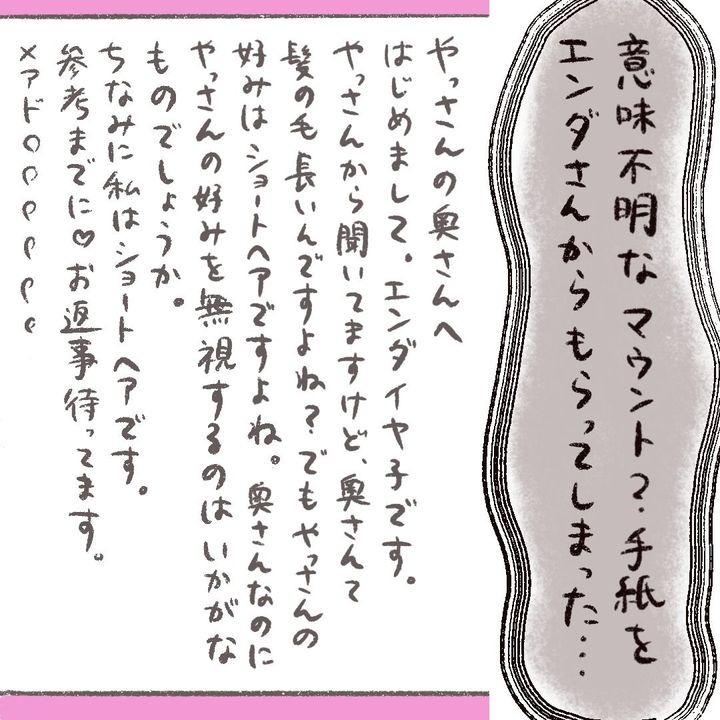 意味不明なマウント?手紙を
エンダさんからもらってしまった…
やっさんの奥さんへ
はじめまして。エンダイヤ子です。
やっさんから聞いてますけど、奥さんて
髪の毛長いんですよね?でもやっさんの
好みはショートヘアですよね。奥さんなのに
やっさんの好みを無視するのはいかがな
ものでしょうか。
ちなみに私はショートヘアです。
参考までに♡お返事待ってます。
メアド○○